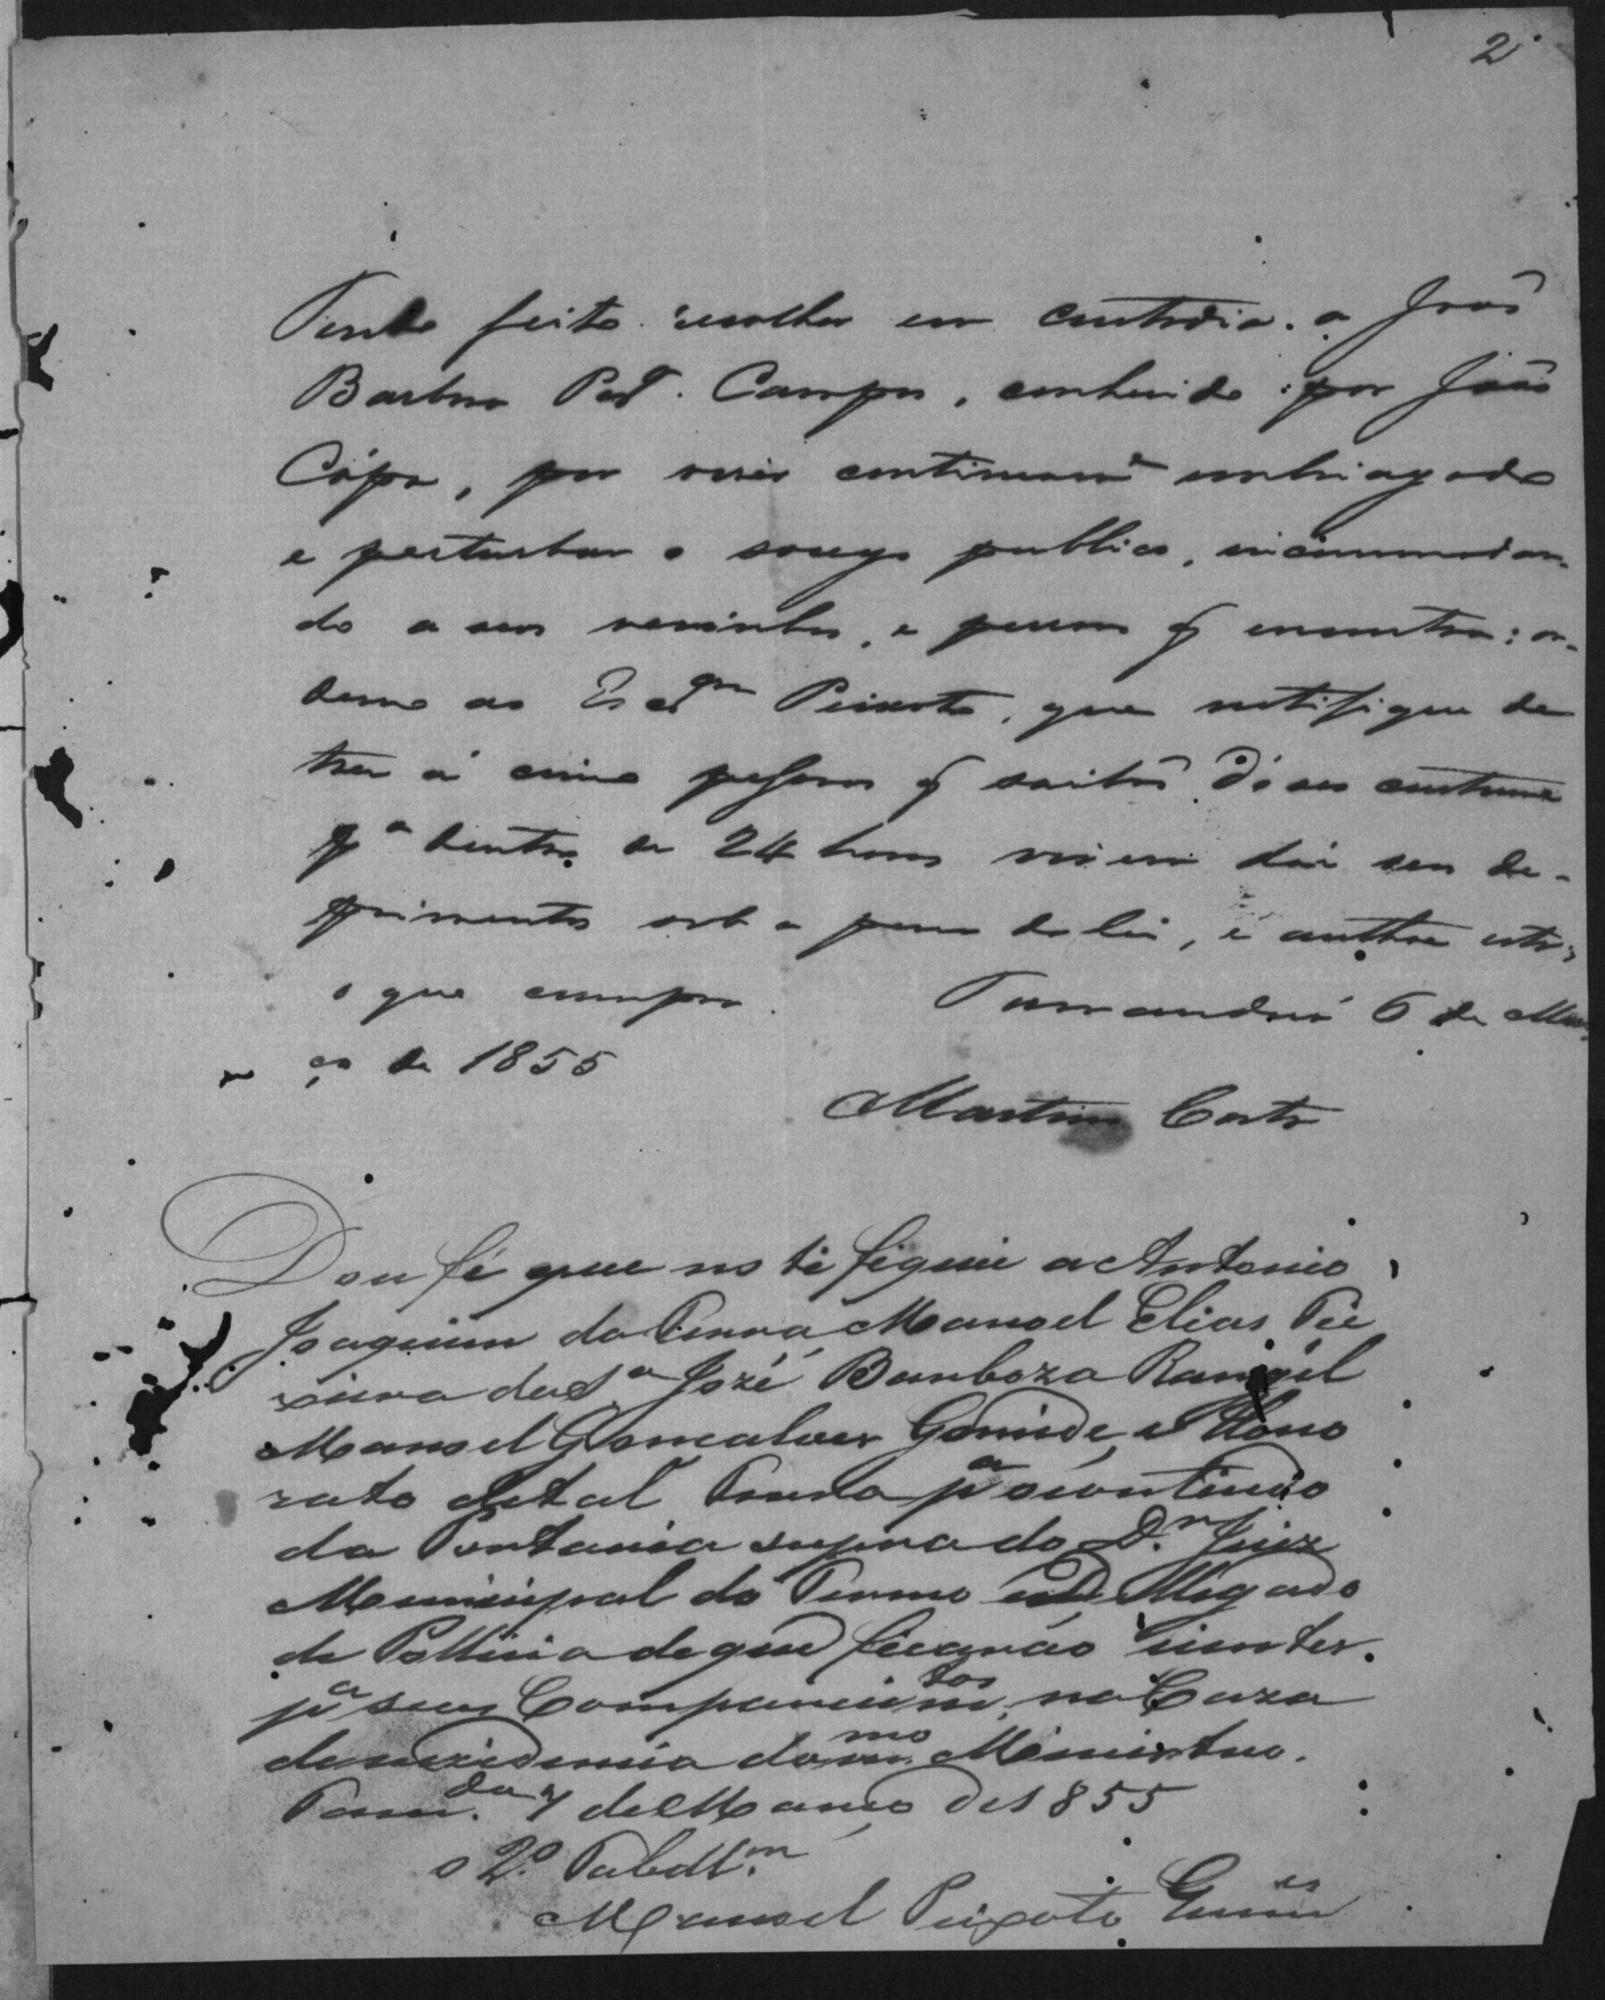 2
Tendo feito recolher em custodia a João
Barboza Per.ª Campos, conhecido por João
Cópa, por viver continuam.e embriagado
e perturbar o socego publico, incommodan-
do a seus vesinhos, e pessoas q encontra: or-
deno ao Escr.am Peixoto, que notifique de
tres á cinco pessoas q saibão do seu custume
p.a dentro de 24 horas virem dar seu de-
poimento sob a pena da lei, e authue esta;
o que cumpra. Tamandaré 6 de Mar-
ço de 1855
Martins Costa
Dou fé que notifiquei a Antonio
Joaquim da Penna, Manoel Elias Tei
xeira da S.a José Barboza Rangel
Manoel Goncalves e Hono
rato de tal p.a o conteudo
da Portaria supra do D.r Juiz
Municipal do Termo e Dellegado
de Pollicia de que ficarão Sientes.
p.a seus Comparecim.tos na Caza
da rezidencia do m.mo Menistro.
Tam.da 7 de Março de 1855
o 2.º Tabell.m
Manoel Peixoto Guim.es